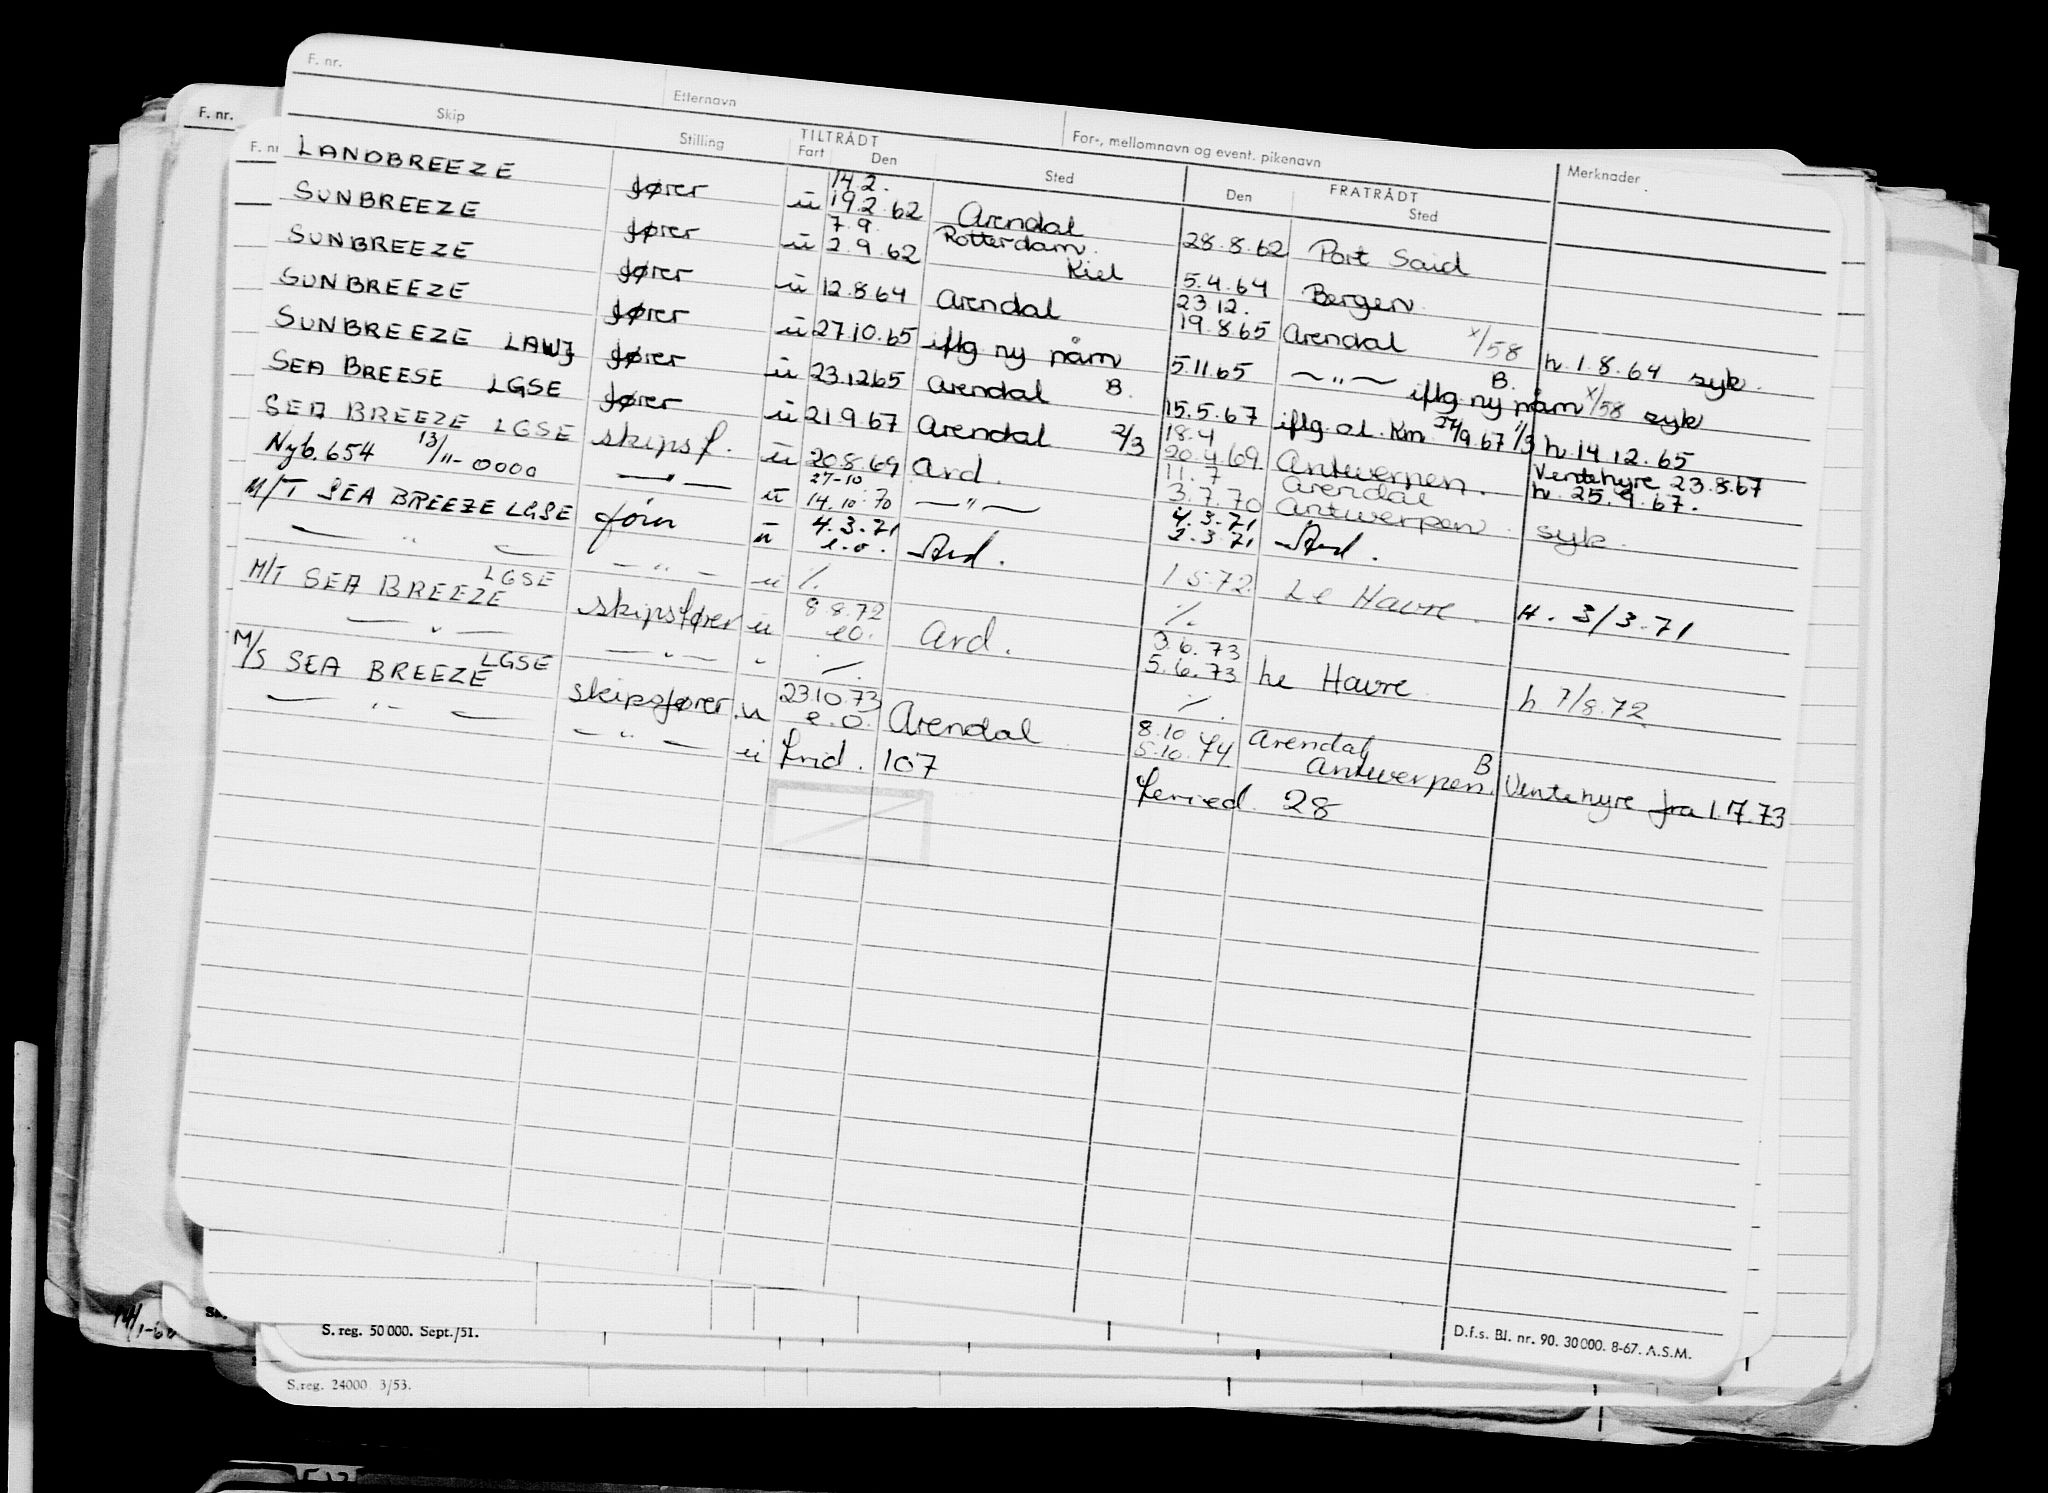 F. nr.
Etternavn
For-, mellomnavn og event. pikenavn
Skip
Stilling
TILTRÅDT
Fart Den
Sted
FRATRÅDT
Den
Sted
Merknader
F. nr.
LANDBREEZE fører u 14.2. 19.2.62 Arendal 28.8.62 Port Said
SUNBREEZE fører u 7.9. 2.9.62 Rotterdam. Kiel 5.4.64 Bergen
SUNBREEZE fører u 12.8.64 Arendal 23.12. 19.8.65 Arendal x/58 h. 1.8.64 syk.
SUNBREEZE fører u 27.10.65 iflg ny nåm 5.11.65 —"— B. iflg ny nåm x/58 syk
SUNBREEZE LAWJ fører u 23.12.65 Arendal B. 15.5.67 iflg o.l. Km 27/9.67 1/3 h. 14.12.65
SEA BREESE LGSE fører u 21.9.67 Arendal 2/3 18.4 20.4.69 Antwerpen. Ventehyre 23.8.67 h. 25.9.67.
SEA BREEZE LGSE skipsf. u 20.8.69 Ard. 11.7 3.7.70 Arendal Antwerpen. syk.
Nyb. 654 13/11-0000 —"— u 27-10 14.10.70 —"— 4.3.71 2.3.71 Ard.
M/T SEA BREEZE LGSE fører u 4.3.71 e.o. Ard. 1.5.72 Le Havre. H. 3/3.71
— " — — " — u %. %.
M/T SEA BREEZE LGSE skipsfører u 8.8.72 eo. Ard. 3.6.73 5.6.73 Le Havre h 7/8.72
— " — — " — " %. %.
M/S SEA BREEZE LGSE skipsfører u 23.10.73 e.o. Arendal 8.10 5.10.74 Arendal Antwerpen. B Ventehyre fra 1.7.73
— " — — " — u frid. 107 feried. 28
S. reg. 50 000. Sept./51.
D.f.s. Bl. nr. 90. 30 000. 8-67. A.S.M.
S.reg. 24000 3/53.